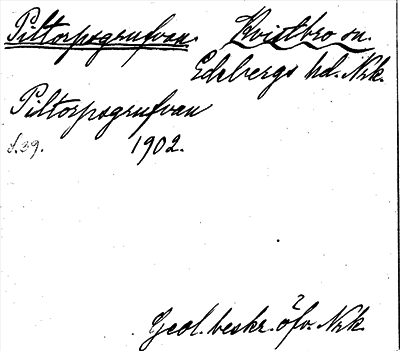 Piltorpsgrufvan. Kvistbro sn.
Edsbergs hd. Nrk.
Piltorpsgrufvan
s.39. 1902.
Geol. beskr. öfv. Nrk